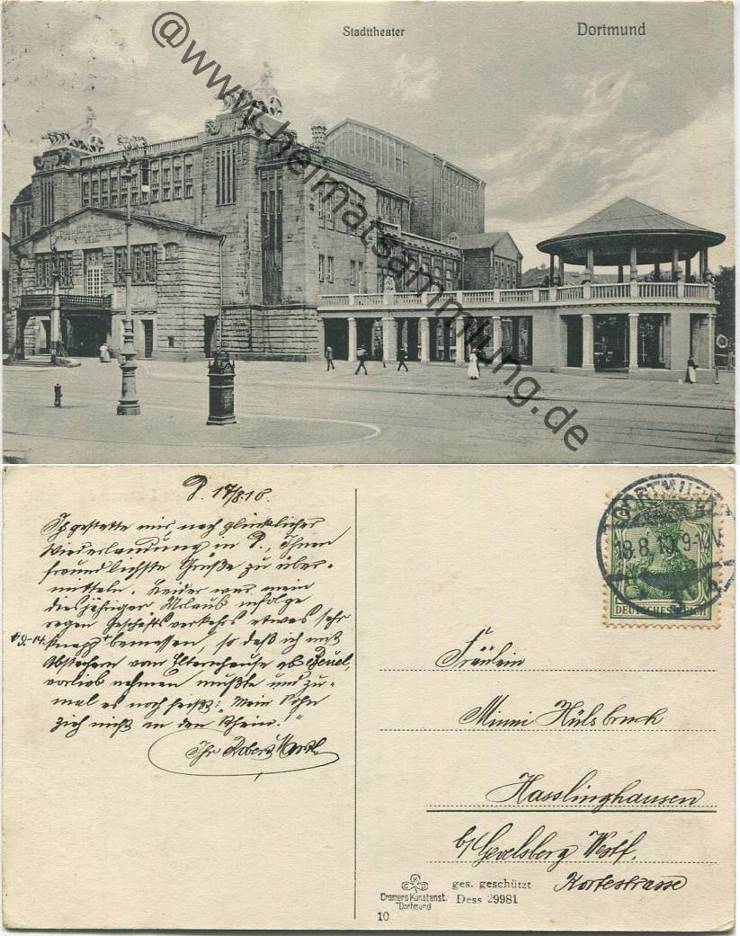 Stadttheater
Dortmund
@www.heimatsammlung.de
D. 17/8.10.
Ich gestatte mir, nach glücklicher
Wiederlandung in D., Ihnen
freundlichste Grüße zu über-
mitteln. Leider war mein
diesjähriger Urlaub infolge
regen Geschäftsverkehrs etwas sehr
knapp bemessen, so daß ich mit
Abstechern vom Elternhause ab Beuel
vorlieb nehmen mußte und zu-
mal es noch heißt: "Mein Sohn
zieh nicht an den Rhein!"
Ihr Robert
DORTMUND
18.8.10. 9-10N
DEUTSCHES REICH
Fräulein
Mimi Hülsbruch
Hasslinghausen
b/Gevelsberg Westf.
Kortestrasse
Cramers Kunstanst.
Dortmund
ges. geschützt
Dess 29981
10